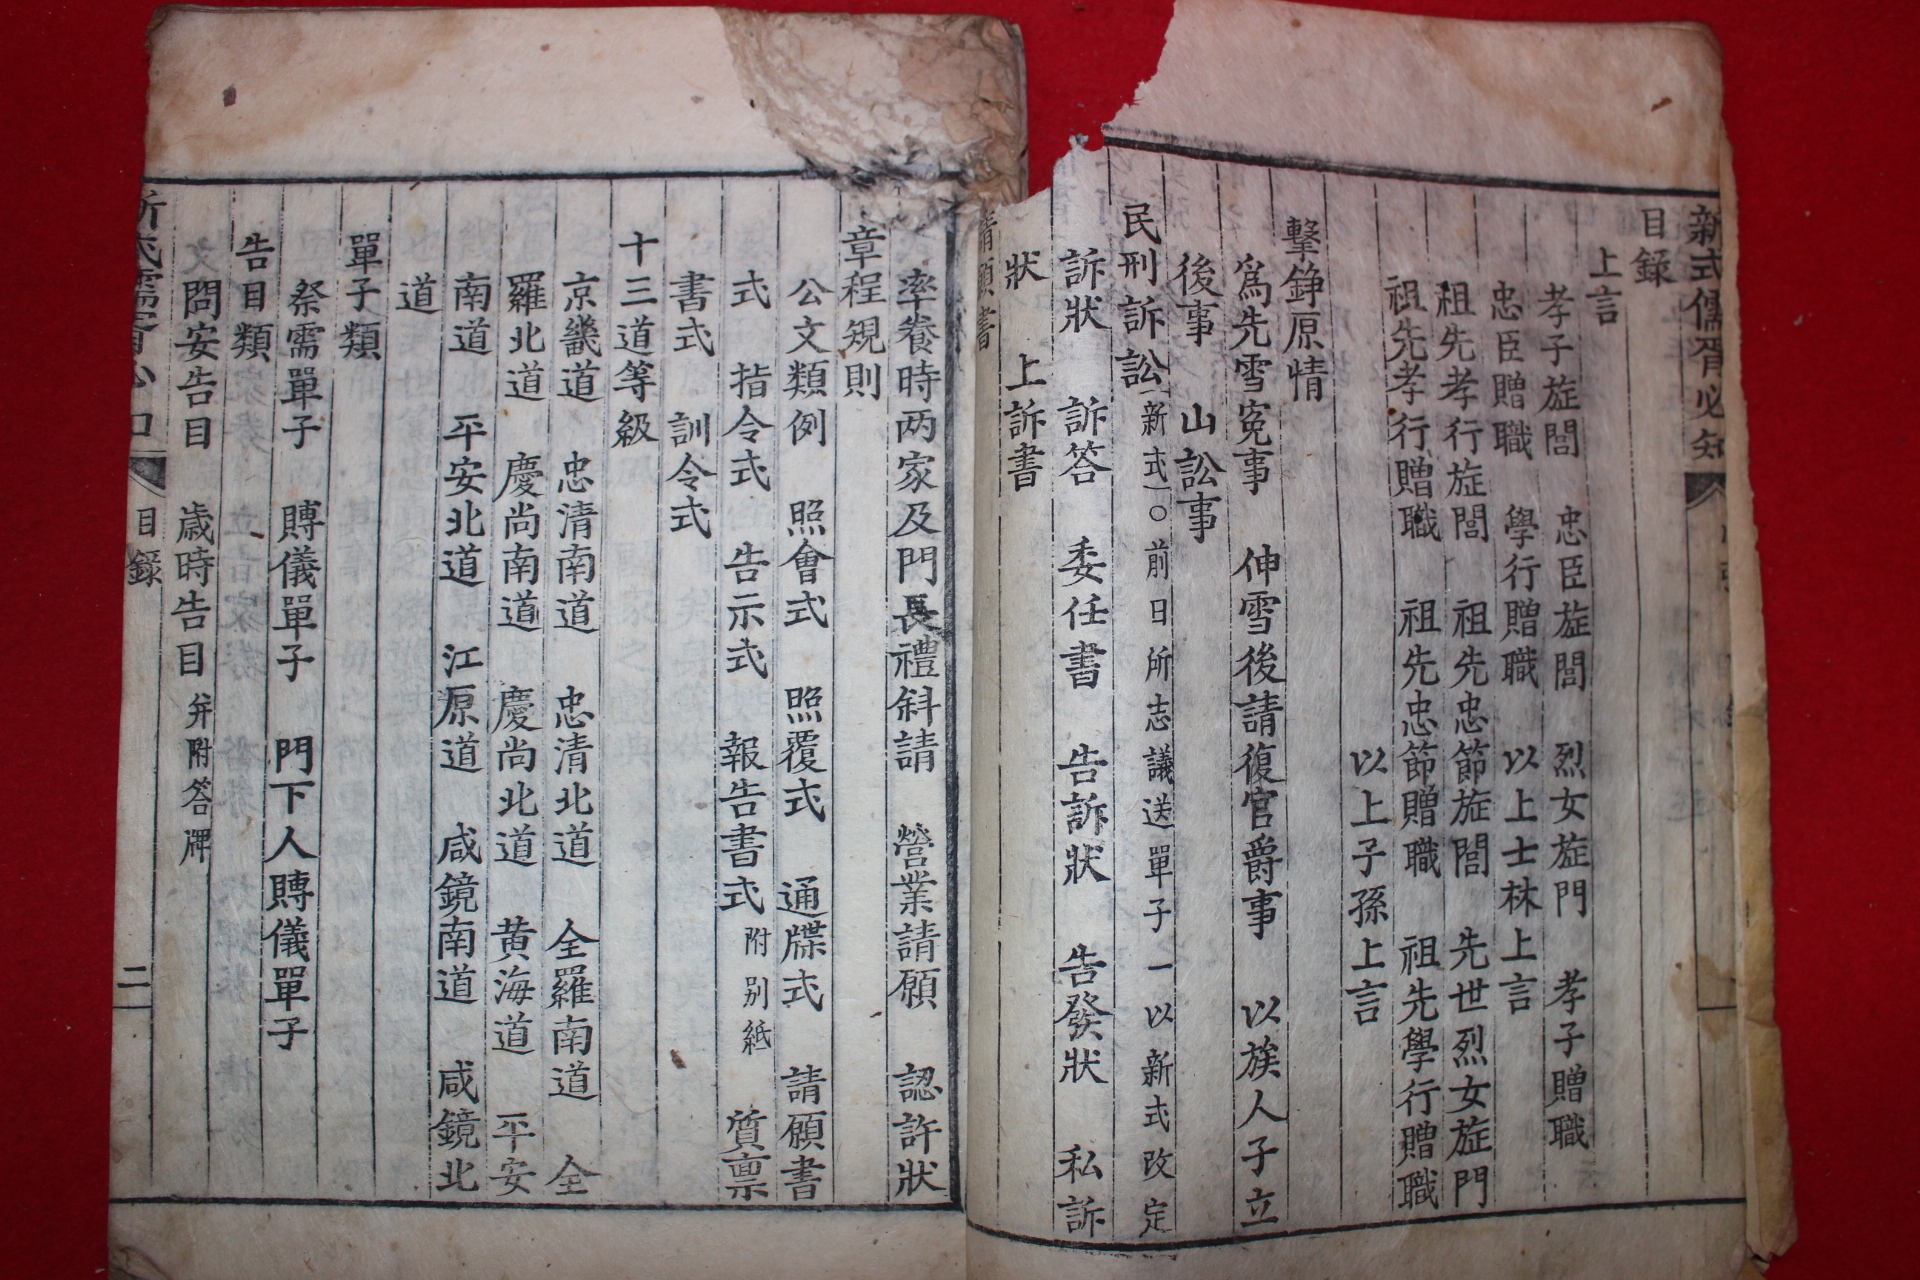 新式儒胥必知
目錄
上言
孝子旌閭 忠臣旌閭 烈女旌門 孝子贈職
忠臣贈職 學行贈職 以上士林上言
祖先孝行旌閭 祖先忠節旌閭 先世烈女旌門
祖先孝行贈職 祖先忠節贈職 祖先學行贈職
以上子孫上言
擊錚原情
爲先雪寃事 伸雪後請復官爵事 以族人子立
後事 山訟事
民刑訴訟 新式○前日所志議送單子一以新式改定
訴狀 訴答 委任書 告訴狀 告發狀 私訴
狀 上訴書
請願書
率養時两家及門長禮斜請 營業請願 認許狀
章程規則
公文類例 照會式 照覆式 通牒式 請願書
式 指令式 告示式 報告書式 附别紙 質稟
書式 訓令式
十三道等級
京畿道 忠清南道 忠清北道 全羅南道 全
羅北道 慶尚南道 慶尚北道 黄海道 平安
南道 平安北道 江原道 咸鏡南道 咸鏡北
道
單子類
祭需單子 賻儀單子 門下人賻儀單子
告目類
問安告目 歳時告目 并附答牌
目錄 二